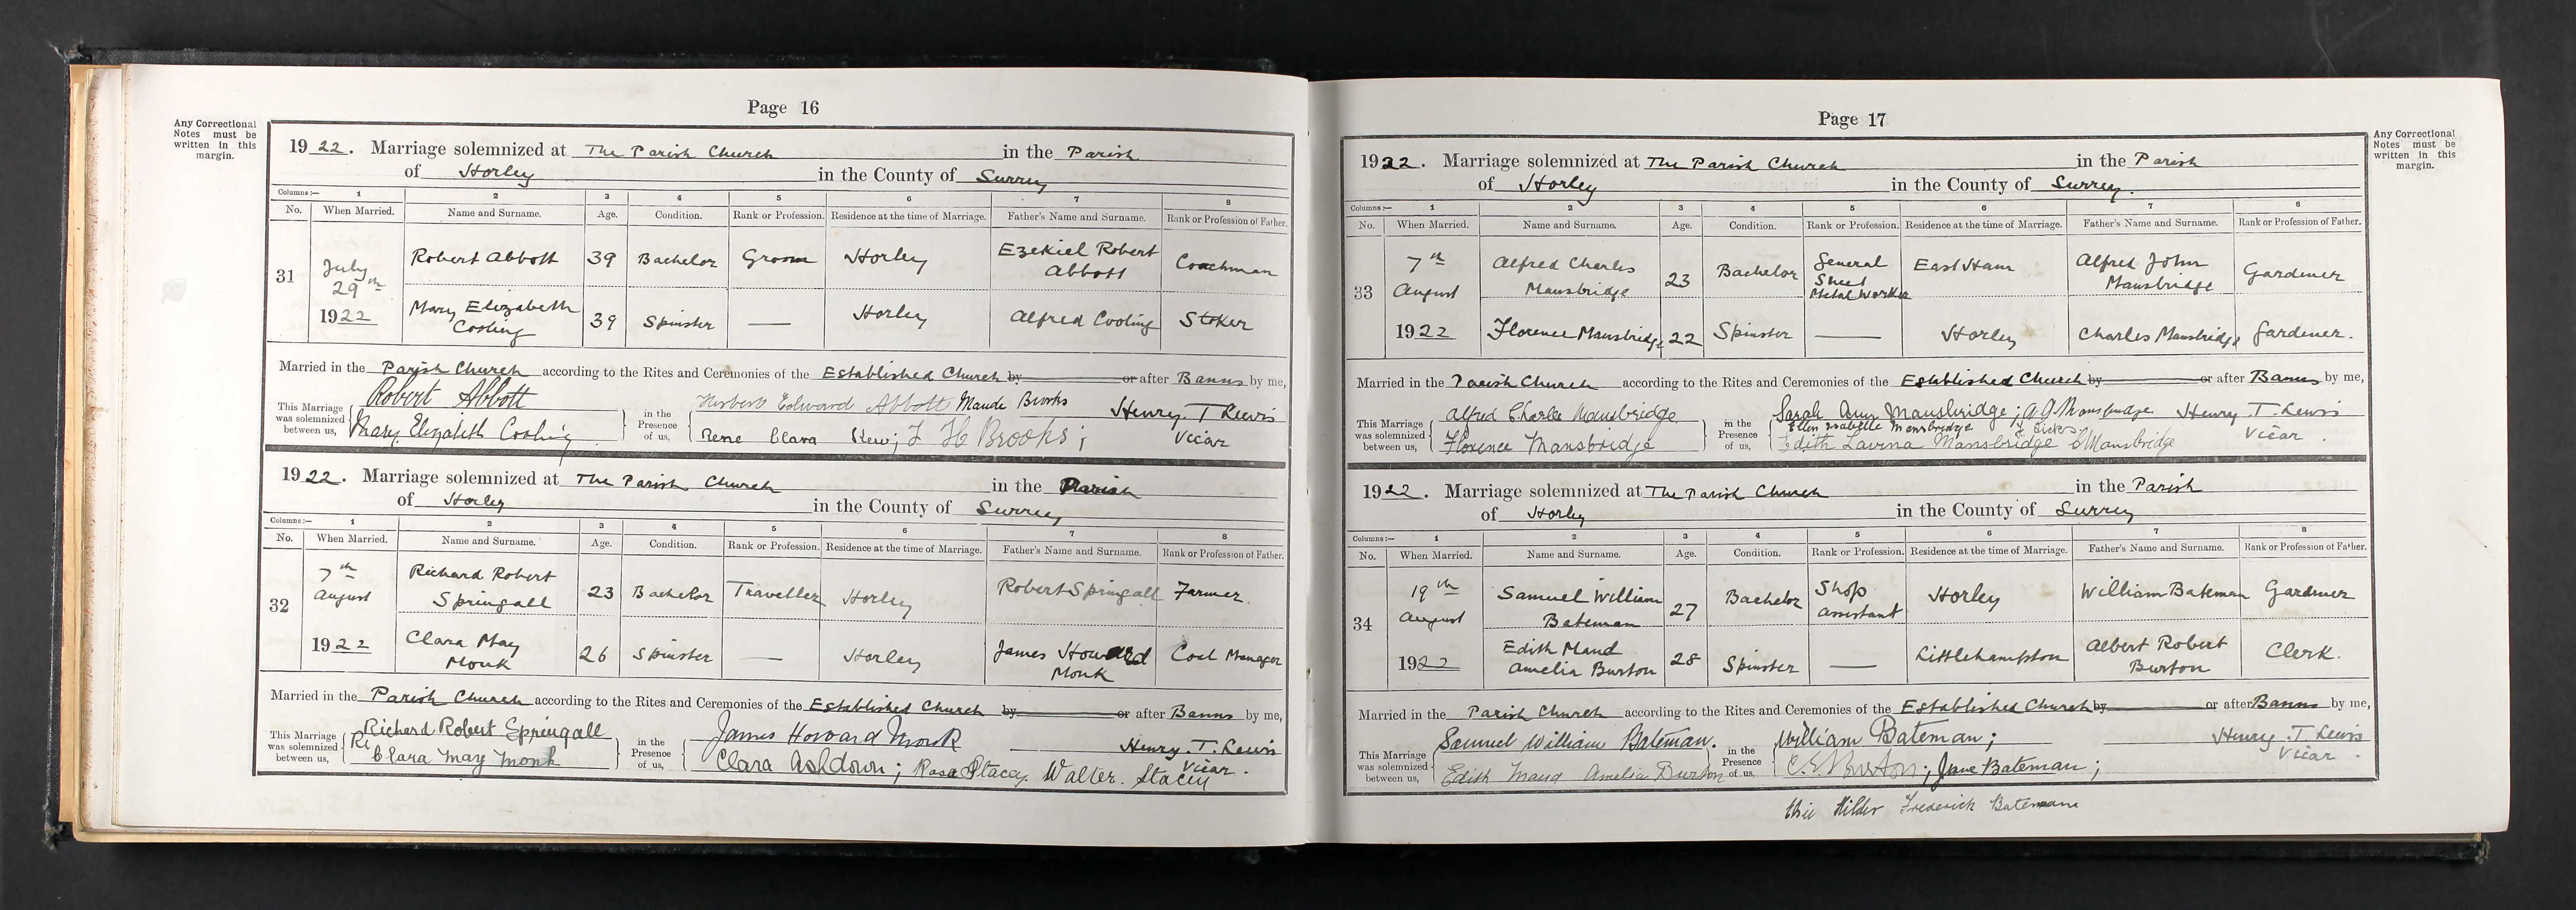 Page 16
Any Correctional
Notes must be
written in this
margin.
1922. Marriage solemnized at The Parish Church in the Parish
of Horley in the County of Surrey
Columns:— 1 2 3 4 5 6 7 8
No. When Married. Name and Surname. Age. Condition. Rank or Profession. Residence at the time of Marriage. Father's Name and Surname. Rank or Profession of Father.
31 July 29th 1922
Robert Abbott 39 Bachelor Groom Horley Ezekiel Robert Abbott Coachman
Mary Elizabeth Cooling 39 Spinster — Horley Alfred Cooling Stoker
Married in the Parish Church according to the Rites and Ceremonies of the Established Church by or after Banns by me,
This Marriage was solemnized between us,
Robert Abbott
Mary Elizabeth Cooling
in the Presence of us,
Herbert Edward Abbott Maude Brooks
Rene Clara ; F H Brooks;
Henry. T. Lewis
Vicar
1922. Marriage solemnized at The Parish Church in the Parish
of Horley in the County of Surrey
Columns:— 1 2 3 4 5 6 7 8
No. When Married. Name and Surname. Age. Condition. Rank or Profession. Residence at the time of Marriage. Father's Name and Surname. Rank or Profession of Father.
32 7th August 1922
Richard Robert Springall 23 Bachelor Traveller Horley Robert Springall Farmer.
Clara May Monk 26 Spinster — Horley James Howard Monk Coal Manager
Married in the Parish Church according to the Rites and Ceremonies of the Established Church by or after Banns by me,
This Marriage was solemnized between us,
Richard Robert Springall
Ri
Clara May Monk
in the Presence of us,
James Howard Monk
Clara Ashdown; Rosa Stacey. Walter. Stacey
Henry. T. Lewis
Vicar.
Page 17
Any Correctional
Notes must be
written in this
margin.
1922. Marriage solemnized at The Parish Church in the Parish
of Horley in the County of Surrey.
Columns:— 1 2 3 4 5 6 7 8
No. When Married. Name and Surname. Age. Condition. Rank or Profession. Residence at the time of Marriage. Father's Name and Surname. Rank or Profession of Father.
33 7th August 1922
Alfred Charles Mansbridge 23 Bachelor General Sheet Metal Worker East Ham Alfred John Mansbridge Gardener
Florence Mansbridge 22 Spinster — Horley Charles Mansbridge Gardener.
Married in the Parish Church according to the Rites and Ceremonies of the Established Church by or after Banns by me,
This Marriage was solemnized between us,
Alfred Charles Mansbridge
Florence Mansbridge
in the Presence of us,
Sarah Ann Mansbridge; A.J. Mansbridge
Ellen Isabelle Mansbridge
Edith Lavina Mansbridge Mansbridge
Henry. T. Lewis
Vicar.
1922. Marriage solemnized at The Parish Church in the Parish
of Horley in the County of Surrey
Columns:— 1 2 3 4 5 6 7 8
No. When Married. Name and Surname. Age. Condition. Rank or Profession. Residence at the time of Marriage. Father's Name and Surname. Rank or Profession of Father.
34 19th August 1922
Samuel William Bateman 27 Bachelor Shop assistant Horley William Bateman Gardener
Edith Maud Amelia Burton 28 Spinster — Littlehampton Albert Robert Burton Clerk.
Married in the Parish Church according to the Rites and Ceremonies of the Established Church by or after Banns by me,
This Marriage was solemnized between us,
Samuel William Bateman.
Edith Maud Amelia Burton
in the Presence of us,
William Bateman;
Burton; Jane Bateman;
Henry. T. Lewis
Vicar.
Hilder Frederick Bateman